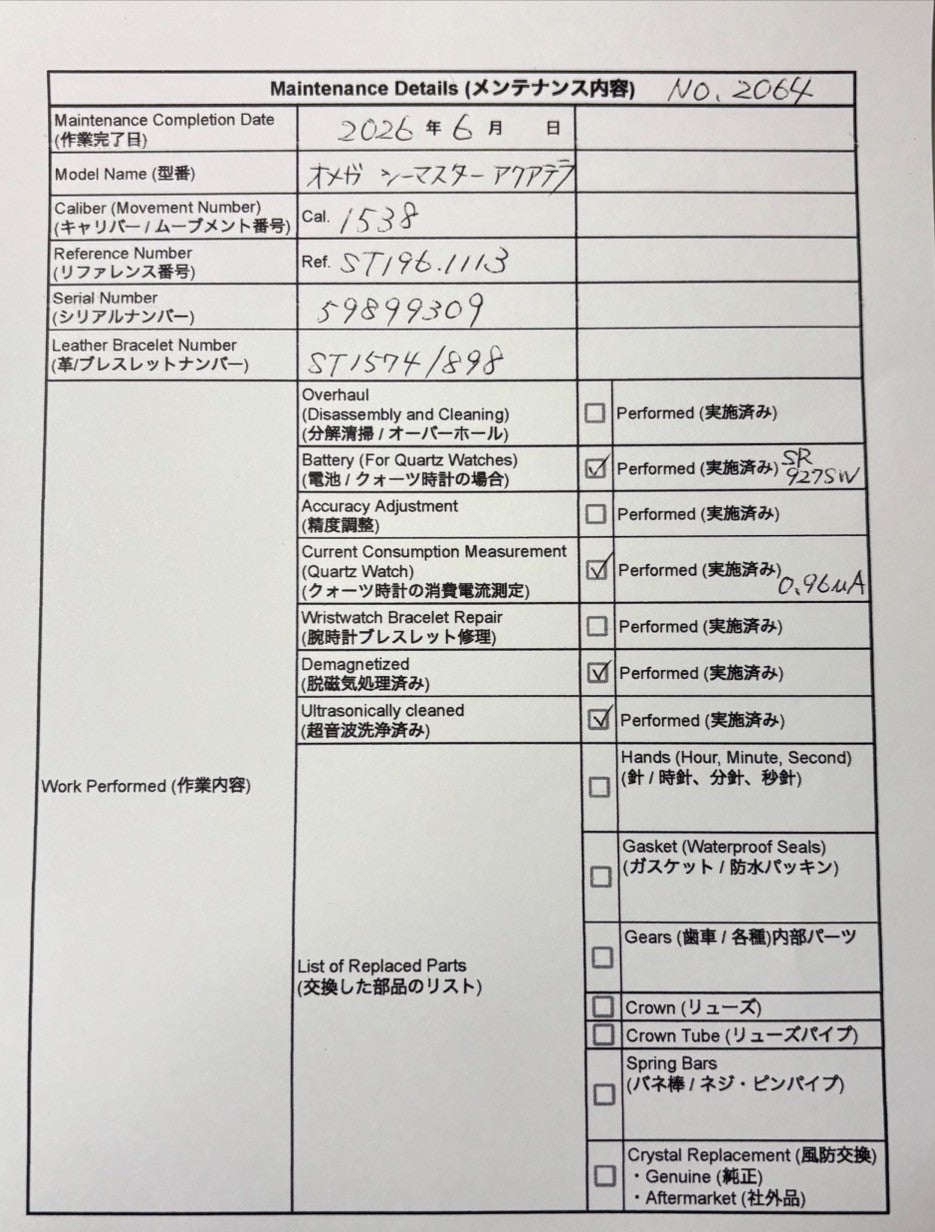 Maintenance Details (メンテナンス内容) NO. 2064
Maintenance Completion Date
(作業完了日)
2026 年 6 月 日
Model Name (型番)
オメガ シーマスター アクアテラ
Caliber (Movement Number)
(キャリバー / ムーブメント番号)
Cal. 1538
Reference Number
(リファレンス番号)
Ref. ST196.1113
Serial Number
(シリアルナンバー)
59899309
Leather Bracelet Number
(革/ブレスレットナンバー)
ST1574/898
Work Performed (作業内容)
Overhaul
(Disassembly and Cleaning)
(分解清掃 / オーバーホール)
Performed (実施済み)
Battery (For Quartz Watches)
(電池 / クォーツ時計の場合)
Performed (実施済み) SR
927SW
Accuracy Adjustment
(精度調整)
Performed (実施済み)
Current Consumption Measurement
(Quartz Watch)
(クォーツ時計の消費電流測定)
Performed (実施済み)
0.96μA
Wristwatch Bracelet Repair
(腕時計ブレスレット修理)
Performed (実施済み)
Demagnetized
(脱磁気処理済み)
Performed (実施済み)
Ultrasonically cleaned
(超音波洗浄済み)
Performed (実施済み)
List of Replaced Parts
(交換した部品のリスト)
Hands (Hour, Minute, Second)
(針 / 時針、分針、秒針)
Gasket (Waterproof Seals)
(ガスケット / 防水パッキン)
Gears (歯車 / 各種)内部パーツ
Crown (リューズ)
Crown Tube (リューズパイプ)
Spring Bars
(バネ棒 / ネジ・ピンパイプ)
Crystal Replacement (風防交換)
・Genuine (純正)
・Aftermarket (社外品)